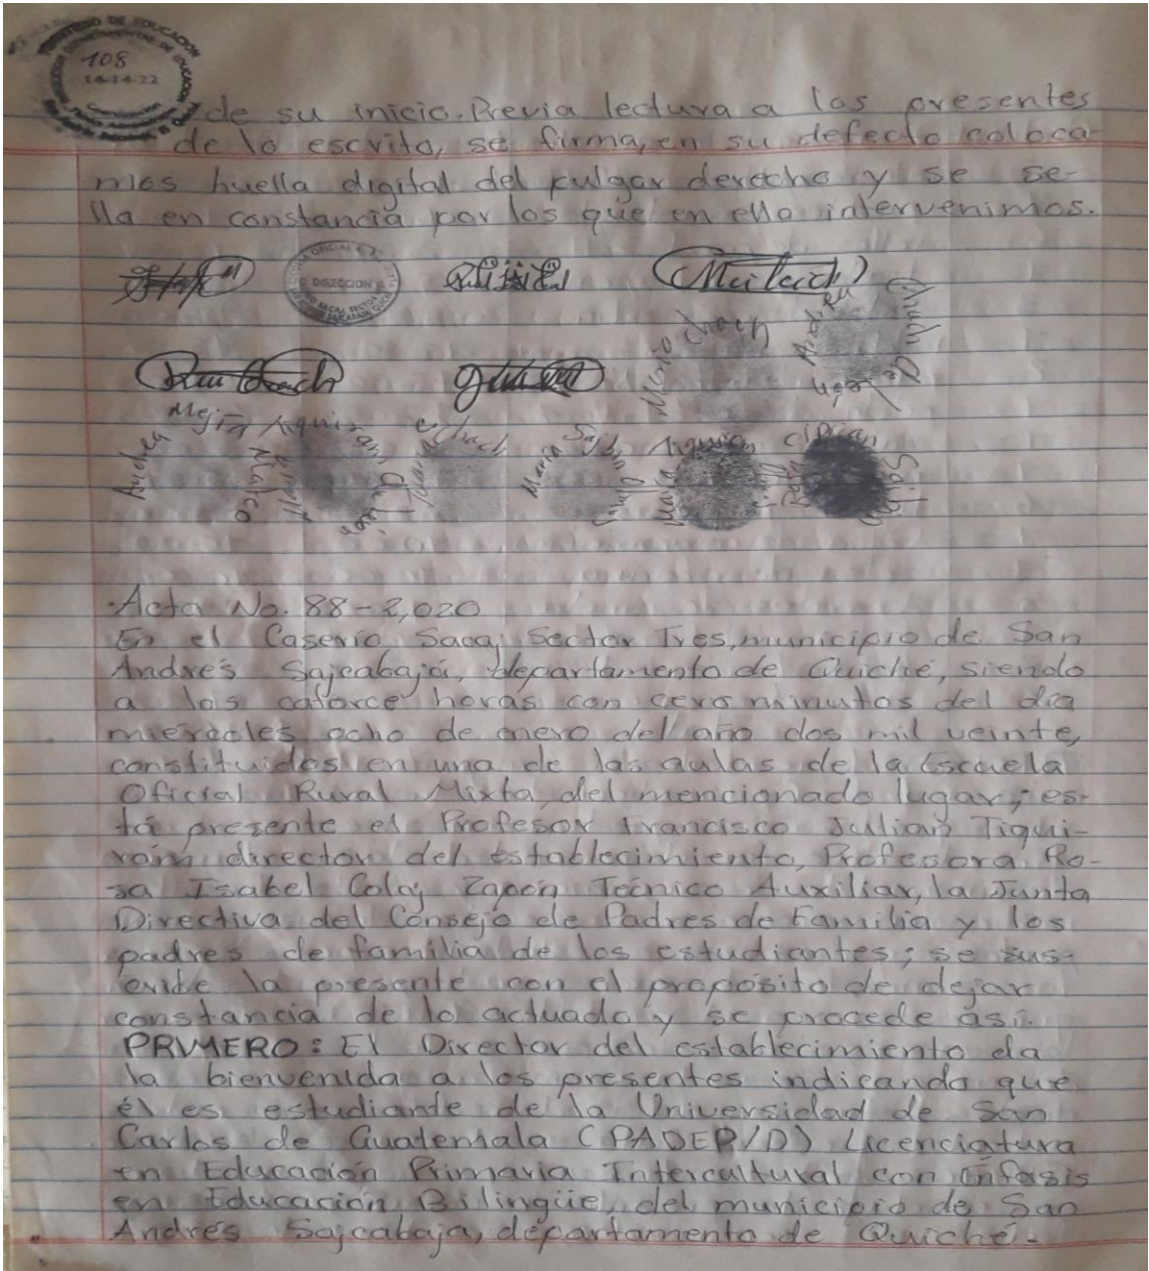 MINISTERIO DE EDUCACION
108
14-14-22
de su inicio. Previa lectura a los presentes
de lo escrito, se firma, en su defecto coloca-
mos huella digital del pulgar derecho y se se-
lla en constancia por los que en ello intervenimos.
DIRECCION
Mario Chach
Mejía Tiquiram
Andrea
Marco
Chach
María Sajbin
Tiquiram
Ciprian
Acta No. 88-2,020
En el Caserío Sacaj Sector Tres, municipio de San
Andrés Sajcabajá, departamento de Quiché, siendo
a las catorce horas con cero minutos del día
miércoles ocho de enero del año dos mil veinte,
constituidos en una de las aulas de la Escuela
Oficial Rural Mixta, del mencionado lugar; es-
tá presente el Profesor Francisco Julian Tiqui-
ram director del establecimiento, Profesora Ro-
sa Isabel Colaj Técnico Auxiliar, la Junta
Directiva del Consejo de Padres de Familia y los
padres de familia de los estudiantes; se sus-
cribe la presente con el propósito de dejar
constancia de lo actuado y se procede así:
PRIMERO: El Director del establecimiento da
la bienvenida a los presentes indicando que
él es estudiante de la Universidad de San
Carlos de Guatemala (PADEP/D) Licenciatura
en Educación Primaria Intercultural con Énfasis
en Educación Bilingüe, del municipio de San
Andrés Sajcabaja, departamento de Quiché.-